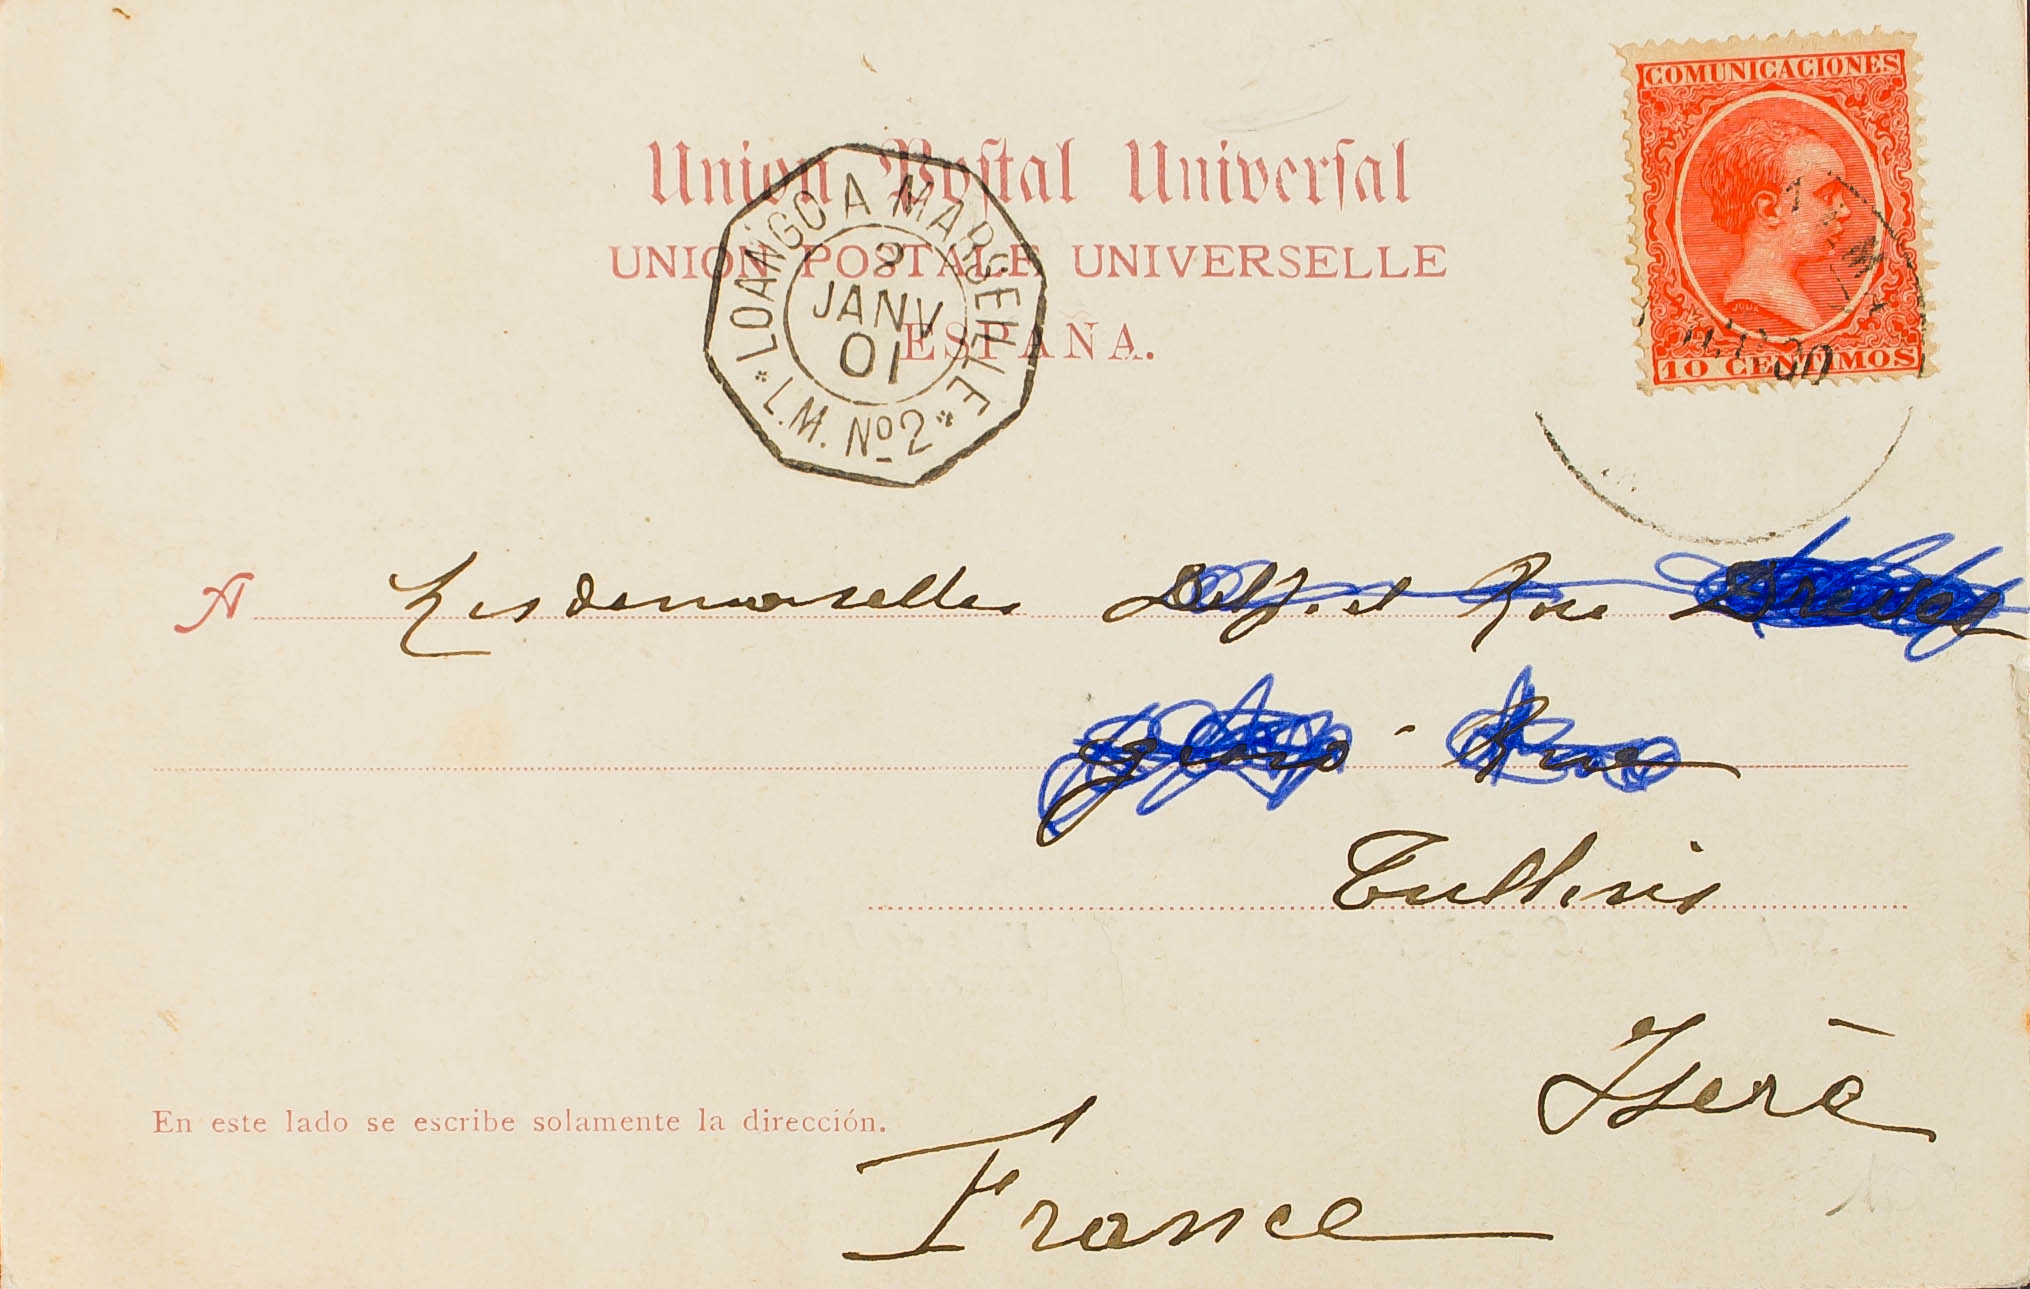 Union Postal Universal
UNION POSTALE UNIVERSELLE
ESPAÑA.
LOANGO A MARSEILLE
2
JANV
01
* L.M. Nº 2 *
COMUNICACIONES
10 CENTIMOS
A Mesdemoiselles et Rose
Tullins
Isère
France
En este lado se escribe solamente la dirección.